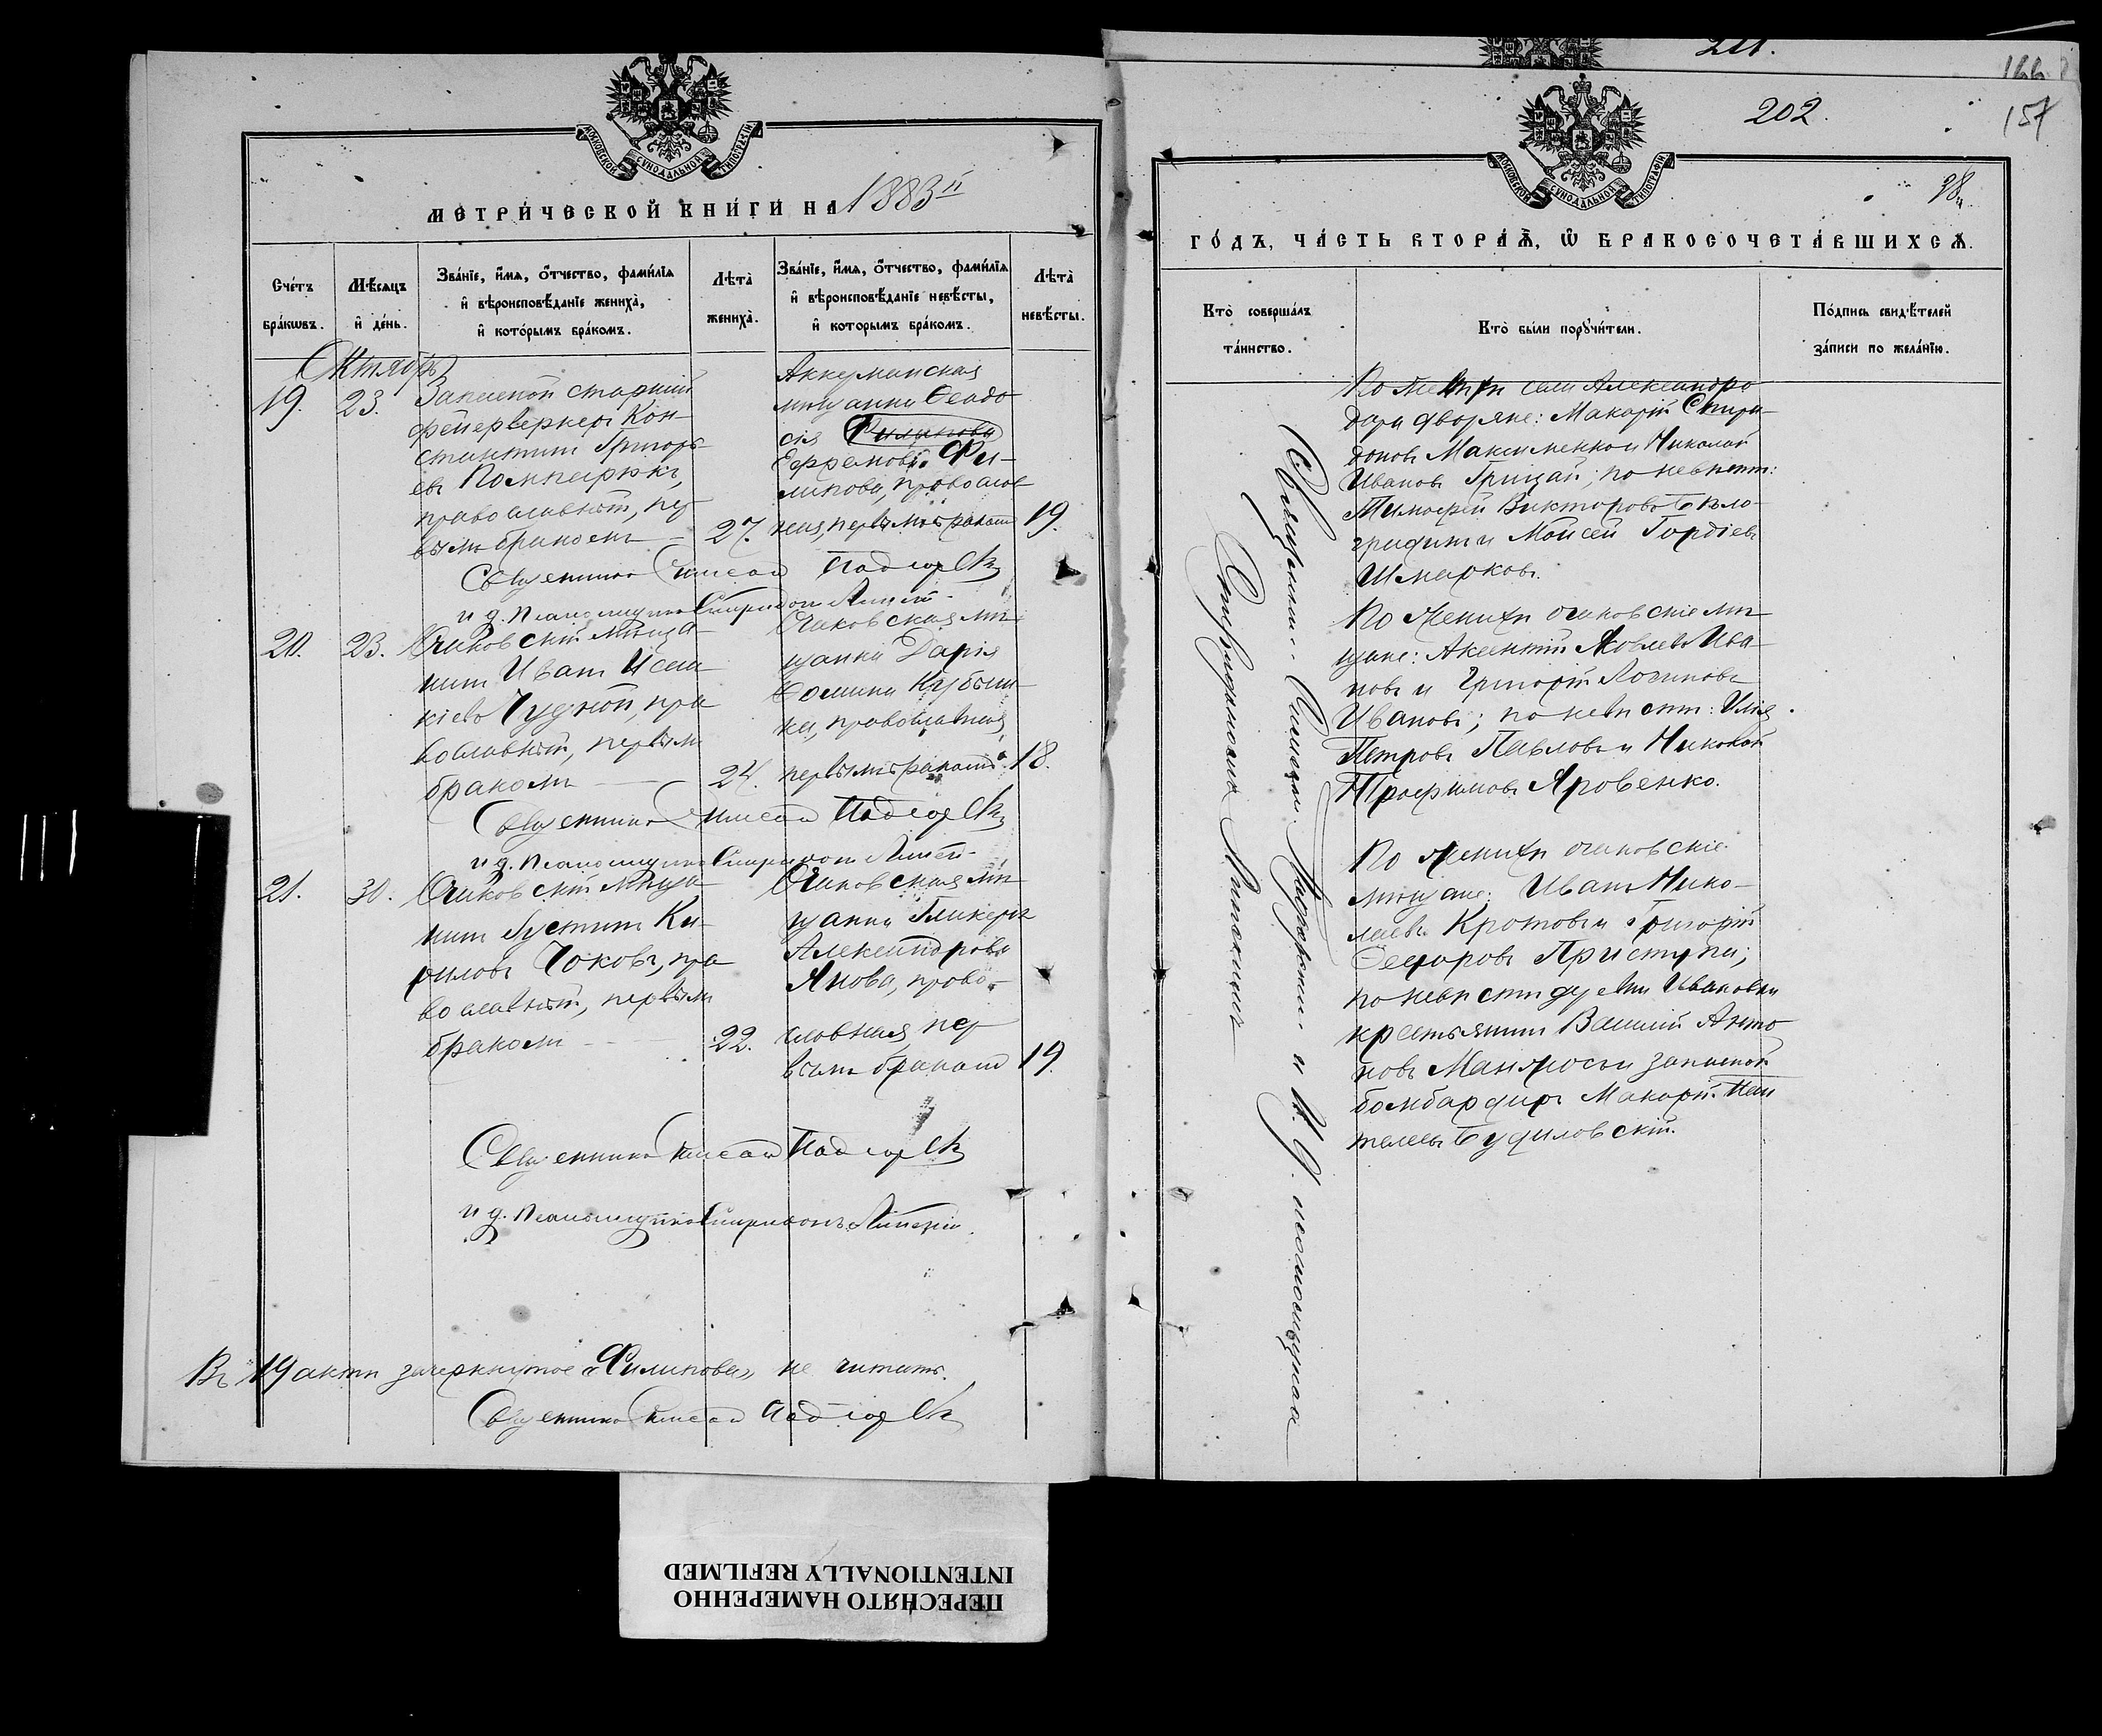 МОСКОВСКОЙ СѴНОДАЛЬНОЙ ТИПОГРАФІИ
МЕТРИ́ЧЕСКОЙ КНИ́ГИ НА 1883й
Сче́тъ бра́кѡвъ.
Мѣ́сѧцъ и҆ де́нь.
Зва́нїе, и҆́мѧ, ѻ҆́тчество, фами́лїѧ
и҆ вѣроисповѣ́данїе жениха̀,
и҆ кото́рымъ бра́комъ.
Лѣта̀ жениха̀.
Зва́нїе, и҆́мѧ, ѻ҆́тчество, фами́лїѧ
и҆ вѣроисповѣ́данїе невѣ́сты,
и҆ которымъ бра́комъ.
Лѣта̀ невѣ́сты.
Октябрь
19.
23.
Запасной старшій
фейерверкеръ Кон-
стантинъ Григорь
евъ
православный, пер
вымъ бракомъ
27.
Аккерманская
мѣщанка Ѳеодо
сія Филипова
Ефремова Фи-
липова, православ
ная, первымъ бракомъ
19.
Священникъ Симеонъ
и д. псаломщика Спиридонъ
20.
23.
Очаковскій мѣща
нинъ Иванъ Исаа
кіевъ Чудной, пра
вославный, первымъ
бракомъ
24.
Очаковская мѣ
щанка Дарія
Ѳомина
ка, православная,
первымъ бракомъ
18.
Священникъ Симеонъ
и д. псаломщика Спиридонъ
21.
30.
Очаковскій мѣща
нинъ Іустинъ Ки-
риловъ Чоковъ, пра
вославный, первымъ
бракомъ
22.
Очаковская мѣ
щанка Гликерія
Александрова
Янова, право-
славная, пер
вымъ бракомъ
19.
Священникъ Симеонъ
и д. псаломщика Спиридонъ
Въ 19 актѣ зачеркнутое «Филипова» не читать.
Священникъ Симеонъ
211.
166
202.
157
38.
МОСКОВСКОЙ СѴНОДАЛЬНОЙ ТИПОГРАФІИ
ГО́ДЪ, ЧА́СТЬ ВТОРА́Ѧ, Ѽ БРАКОСОЧЕТА́ВШИХСѦ.
Кто̀ соверша́лъ
та́инство.
Кто̀ бы́ли порꙋчи́тели.
По́дпись свидѣ́телей
за́писи по жела́нїю.
Священникъ Симеонъ и И. Д. псаломщика
Спиридонъ
По женихѣ села Александро
дара дворяне: Макарій Спири-
доновъ Максименко и Николай
Ивановъ Грицай; по невѣстѣ:
Тимофей Викторовъ Бѣло-
градинъ и Моисей Гордіевъ
Шмарковъ.
По женихѣ очаковскіе мѣ
щане: Акентій Яковлевъ Ива-
новъ и Григорій Логиновъ
Ивановъ; по невѣстѣ: Илія
Петровъ Павловъ и Николай
Трофимовъ Яровенко.
По женихѣ очаковскіе
мѣщане: Иванъ Нико-
лаевъ Кротовъ и Григорій
Ѳедоровъ Приступа;
по невѣстѣ Ивановки
крестьянинъ Василій Анто
новъ и запасной
бомбардиръ Макарій Пан
телеевъ Будиловскій.
ПЕРЕСНЯТО НАМЕРЕННО
INTENTIONALLY REFILMED